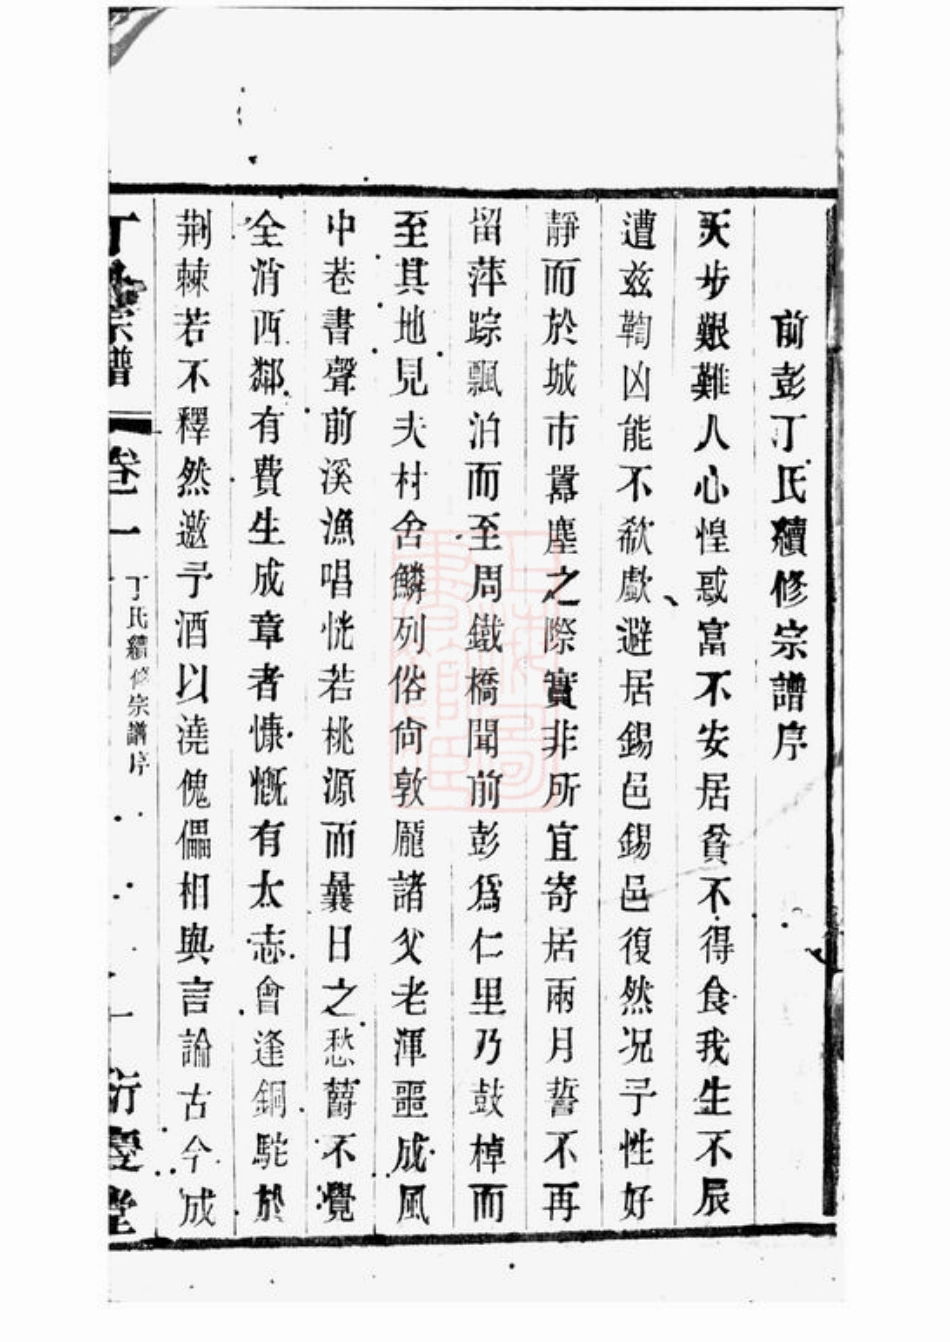 前彭丁氏續修宗譜序
天步艱難人心惶惑富不安居貧不得食我生不辰
遭兹鞫凶能不欷歔避居錫邑錫邑復然况予性好
靜而於城市囂塵之際實非所宜寄居兩月誓不再
留萍踪飄泊而至周鐵橋聞前彭爲仁里乃鼓棹而
至其地見夫村舍鱗列俗尙敦龐諸父老渾噩成風
中巷書聲前溪漁唱恍若桃源而曩日之愁欝不覺
全消西鄰有費生成章者慷慨有大志會逢銅駝於
荆棘若不釋然邀予酒以澆傀儡相與言論古今成
丁氏宗譜 卷一 丁氏續修宗譜序 一 衍慶堂
上海圖書館藏